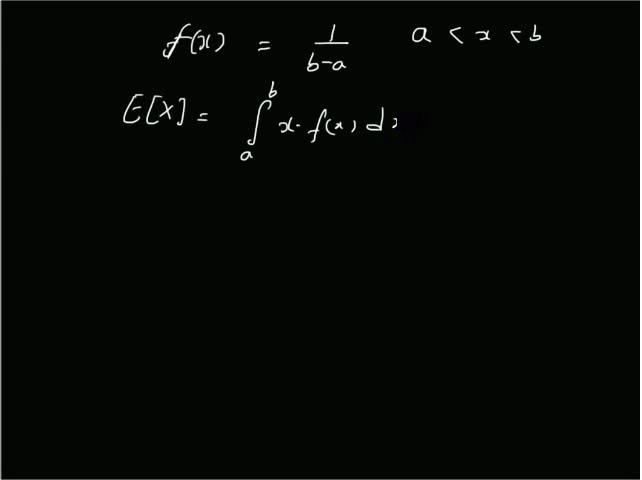 f(x) = 1/(b-a) a < x < b
E[X] = ∫_a^b x · f(x) dx